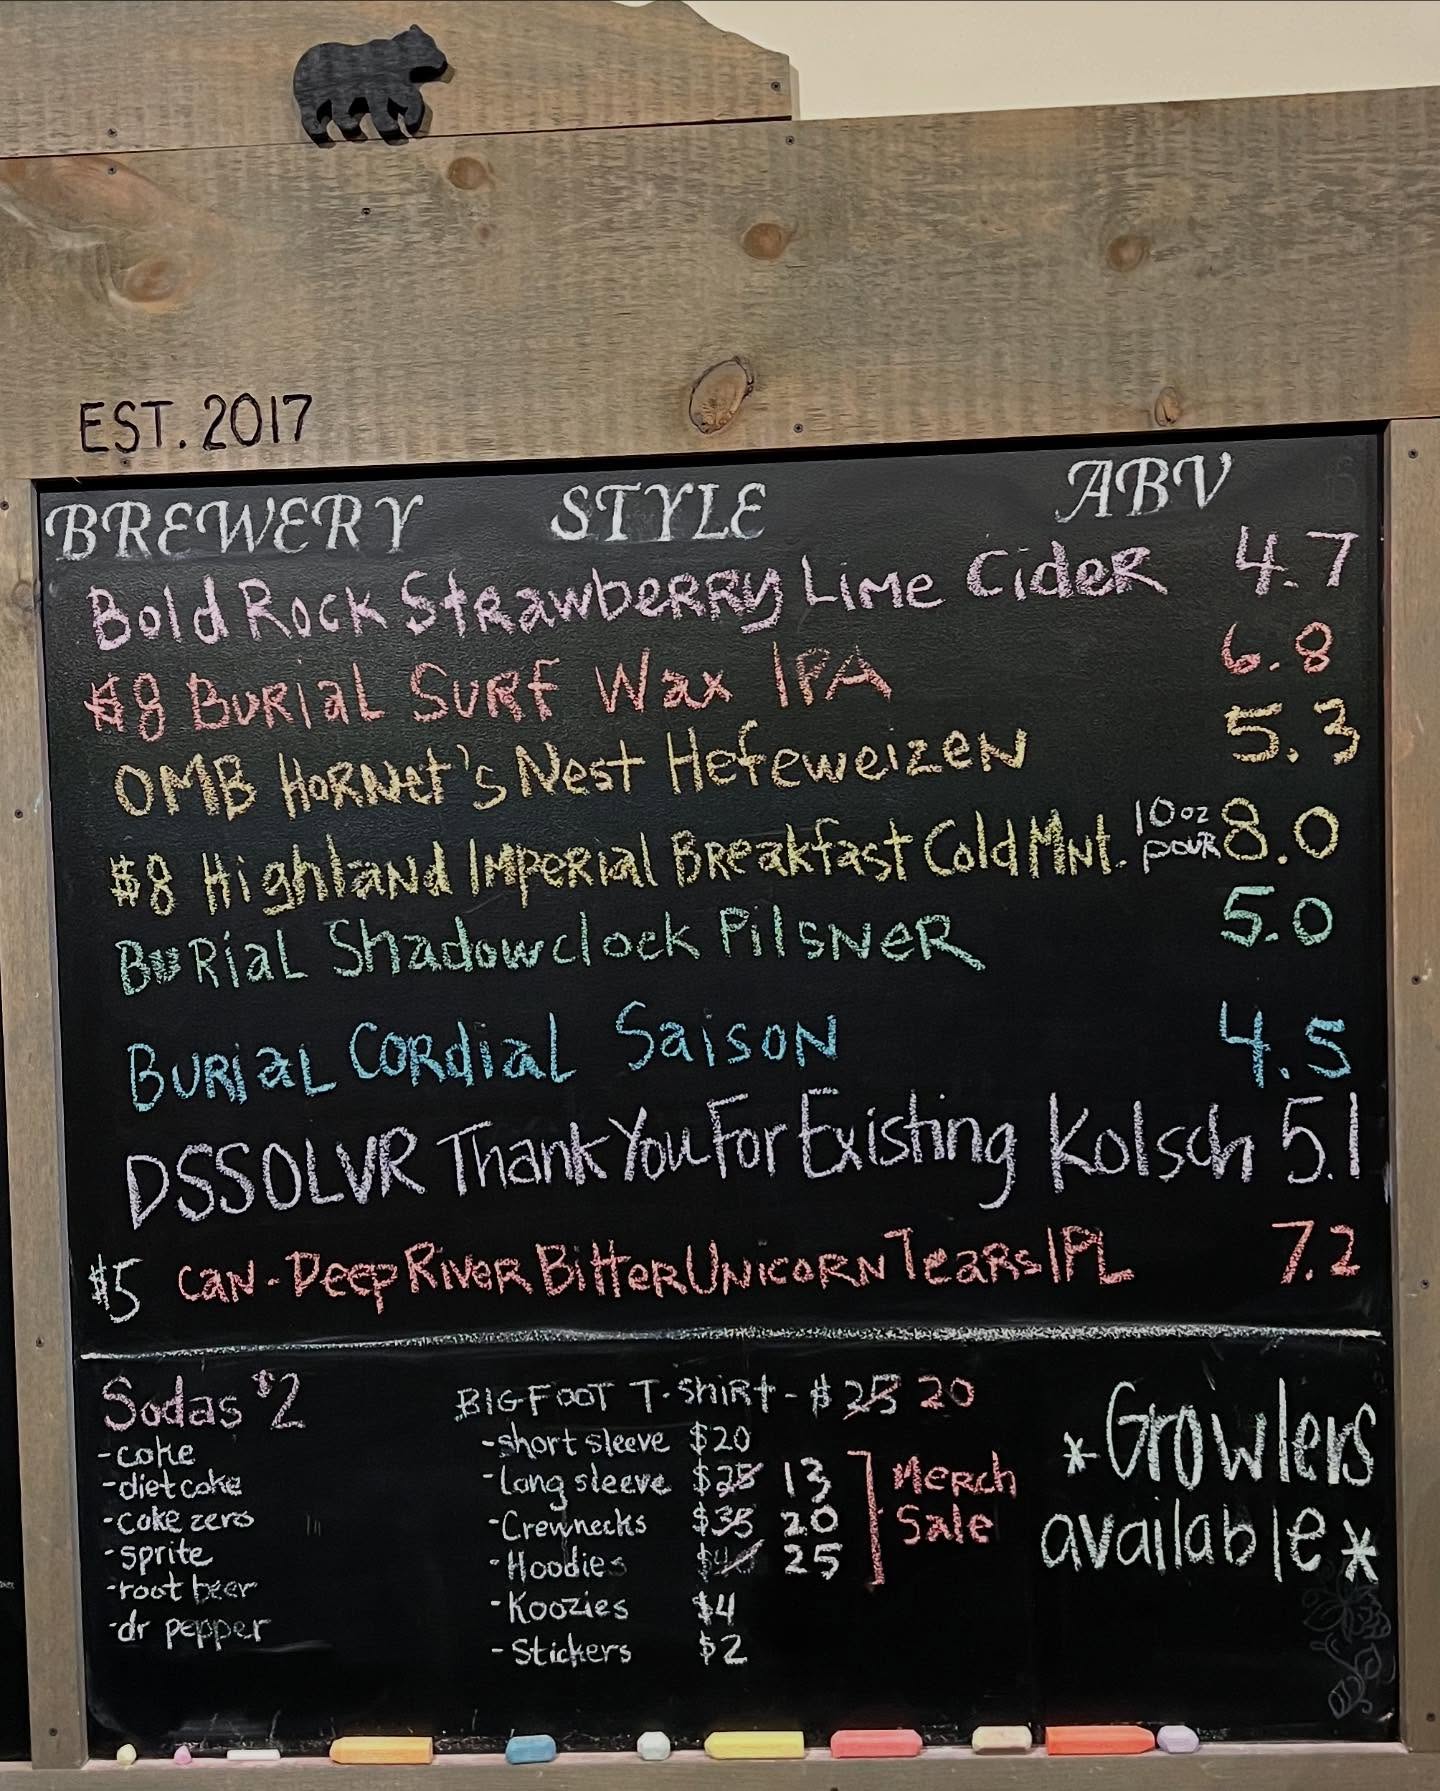 EST. 2017
BREWERY STYLE ABV
Bold Rock Strawberry Lime Cider 4.7
$8 Burial Surf Wax IPA 6.8
OMB Hornet's Nest Hefeweizen 5.3
$8 Highland Imperial Breakfast Cold Mnt. 10oz pour 8.0
Burial Shadowclock Pilsner 5.0
Burial Cordial Saison 4.5
DSSOLVR Thank You For Existing Kolsch 5.1
$5 can - Deep River Bitter Unicorn Tears IPL 7.2
Sodas $2
-coke
-diet coke
-coke zero
-sprite
-root beer
-dr pepper
BIGFOOT T-Shirt - $25 20
-short sleeve $20
-long sleeve $25 13
-Crewnecks $35 20
-Hoodies 25
-Koozies $4
-Stickers $2
Merch
Sale
*Growlers
available*